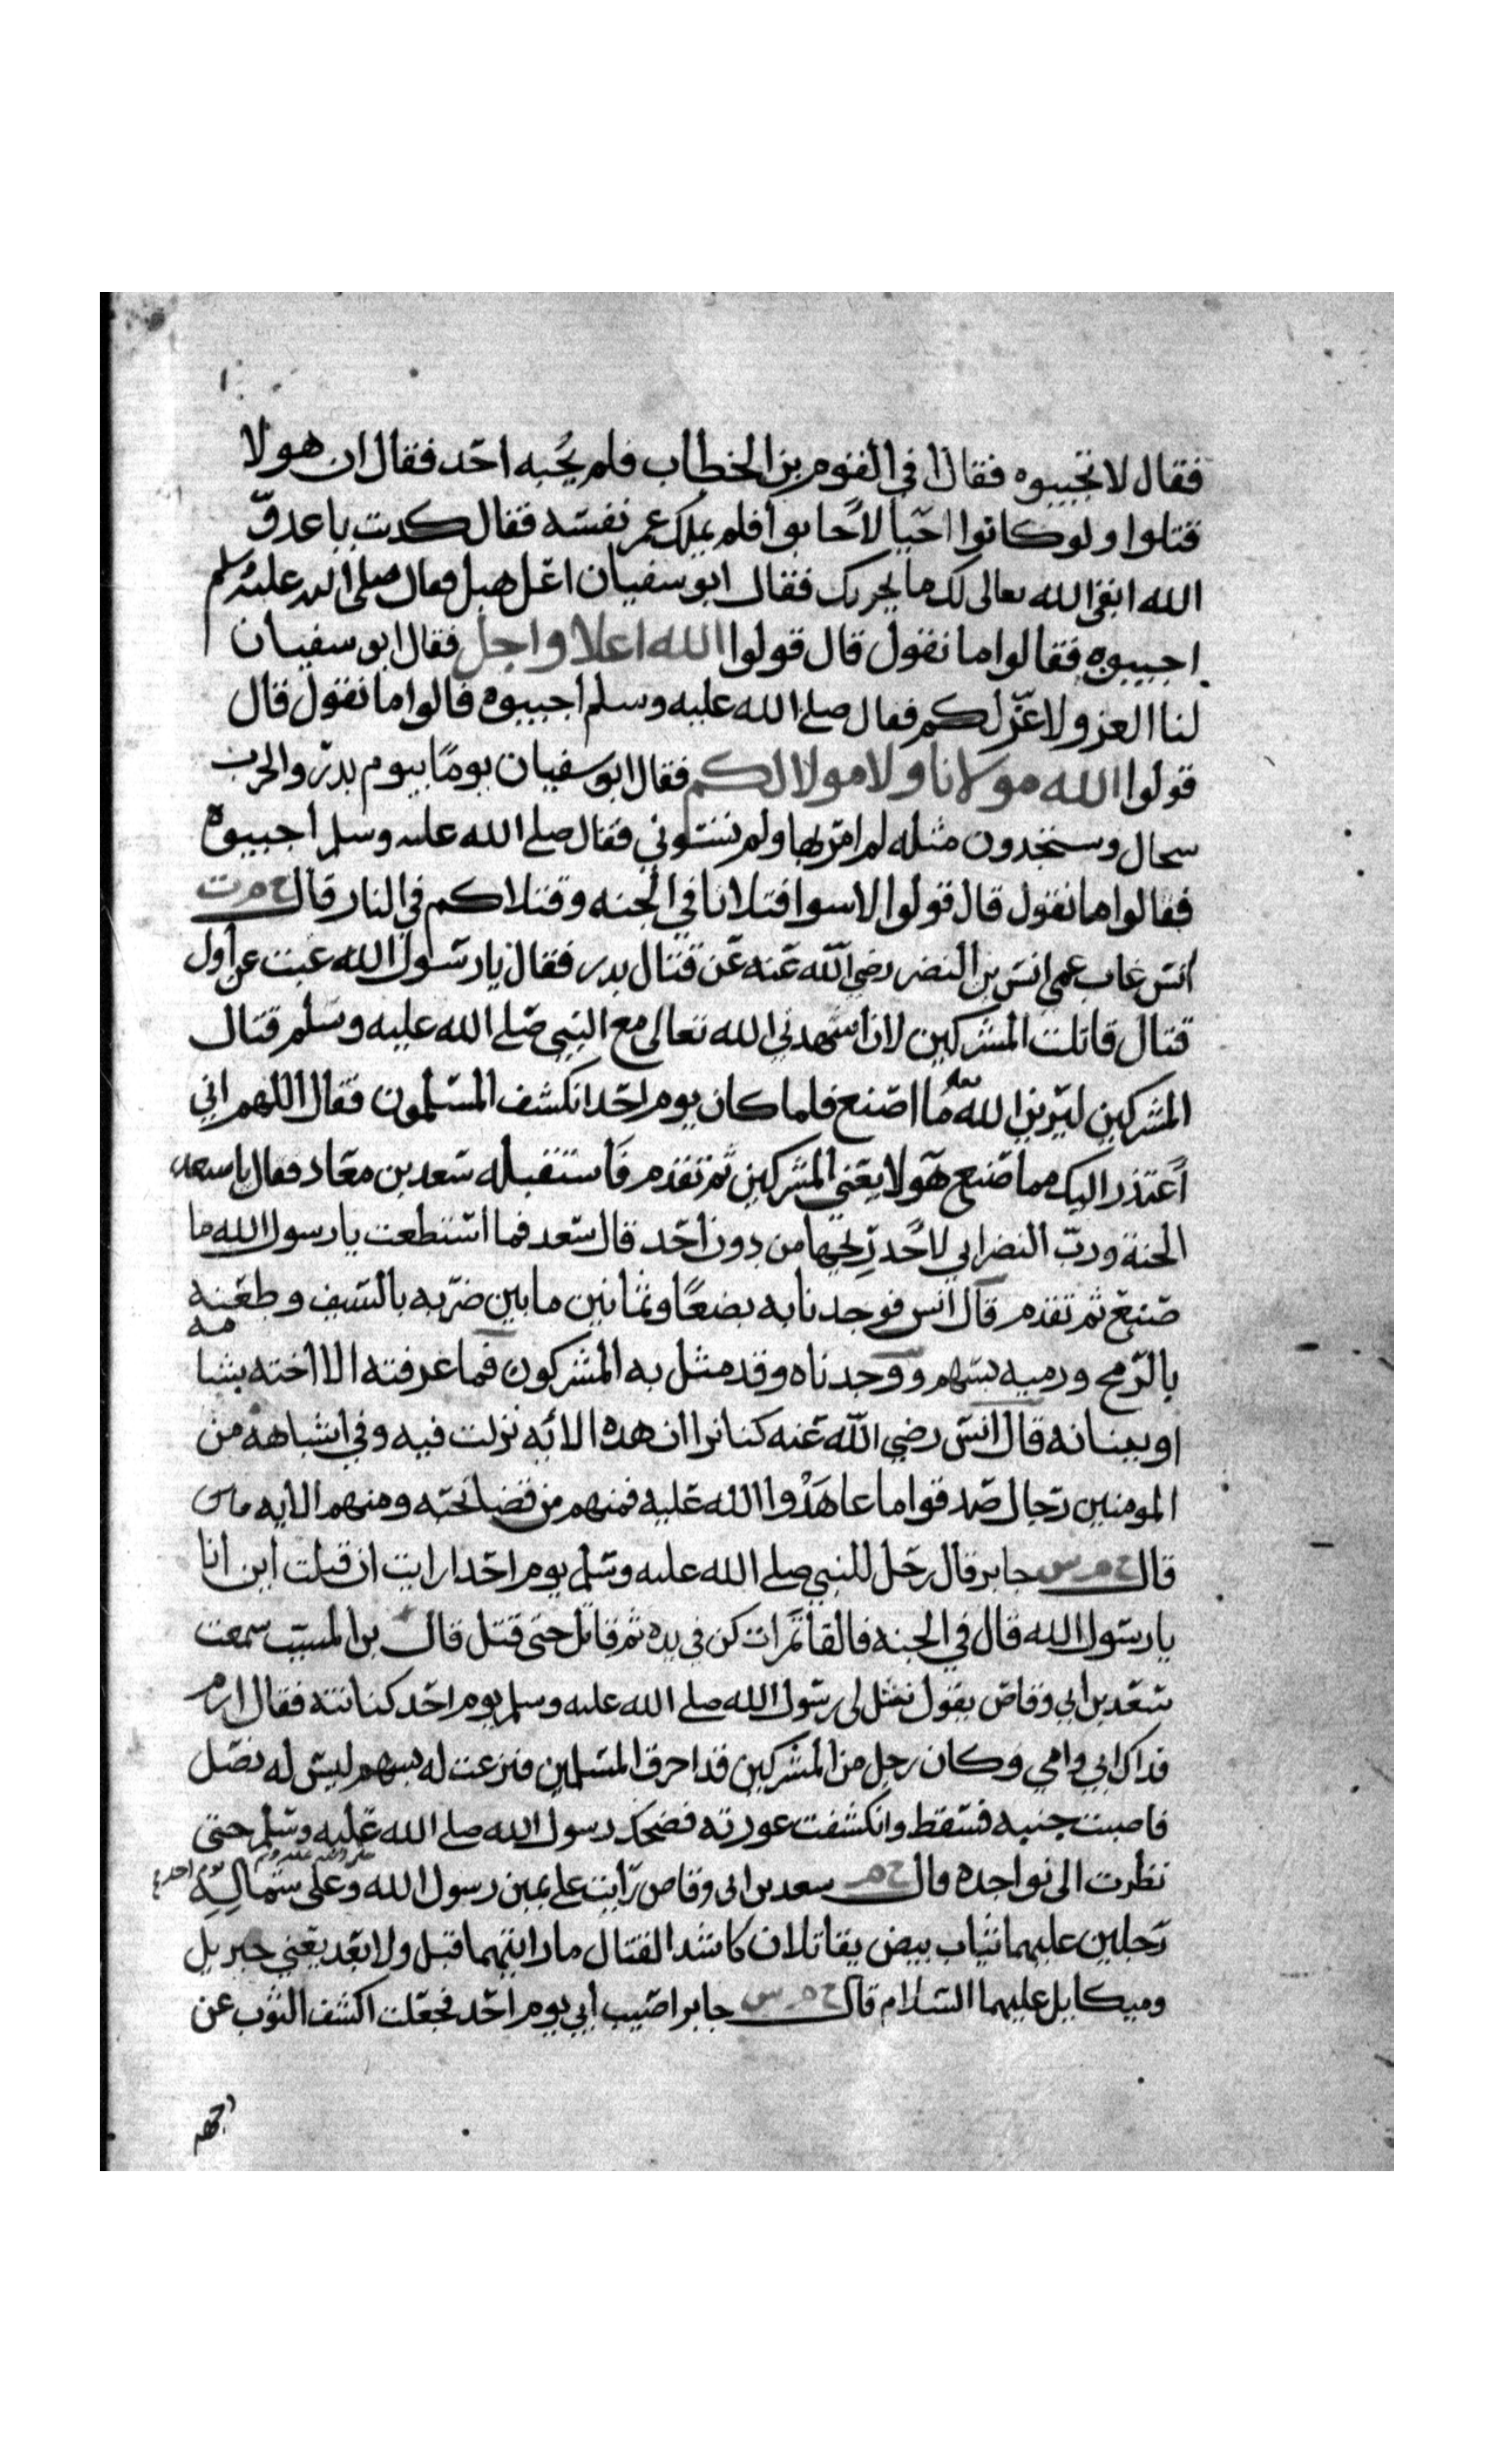 فقال لا تجيبوه فقال افي القوم بن الخطاب فلم يجبه احد فقال ان هولا
قتلوا ولو كانوا احيا لاحابوا فلم يملك عمر نفسه فقال كدبت ياعدو
الله ابقى الله تعالى لك ما يحزيك فقال ابو سفيان اعل هبل فقال صلى الله عليه وسلم
اجيبوه فقالوا ما نقول قال قولوا الله اعلا واجل فقال ابو سفيان
لنا العز ولا عز لكم فقال صلى الله عليه وسلم اجيبوه قالوا ما نقول قال
قولوا الله مولانا ولا مولا لكم فقال ابو سفيان يوما بيوم بدر والحرب
سجال وستجدون مثله لم امر بها ولم تسوني فقال صلى الله عليه وسلم اجيبوه
فقالوا ما نقول قال قولوا لا سوا قتلانا في الجنه وقتلاكم في النار قال خ م ت
انس غاب عمي انس بن النضر رضي الله عنه عن قتال بدر فقال يا رسول الله غبت عن أول
قتال قاتلت المشركين لان اشهدني الله تعالى مع النبي صلى الله عليه وسلم قتال
المشركين ليرين الله ما اصنع فلما كان يوم احد انكشف المسلمون فقال اللهم اني
أعتذر اليك مما صنع هولا يعني المشركين ثم تقدم فاستقبله سعد بن معاد فقال يا سعد
الجنة ورب النضر اني لاجد ريحها من دون احد قال سعد فما استطعت يا رسول الله ما
صنع ثم تقدم قال انس فوجدنا به بضعا وثمانين ما بين ضربه بالسيف وطعنه
بالرمح ورميه بسهم ووجدناه وقد مثل به المشركون فما عرفته الا اخته بشامه
او ببنانه قال انس رضي الله عنه كنا نرا ان هده الايه نزلت فيه وفي اشباهه من
المومنين رجال صدقوا ما عاهدوا الله عليه فمنهم من قضا نحبه ومنهم الايه
قال خ م س جابر قال رجل للنبي صلى الله عليه وسلم يوم احد ارايت ان قتلت اين انا
يا رسول الله قال في الجنه فالقا تمرات كن في يده ثم قاتل حتى قتل قال بن المسيب سمعت
سعد بن ابي وقاص يقول نثل لي رسول الله صلى الله عليه وسلم يوم احد كنانته فقال ارم
فداك ابي وامي وكان رجل من المشركين قد احرق المسلمين فنزعت له بسهم ليس له نصل
فاصبت جنبه فسقط وانكشفت عورته فضحك رسول الله صلى الله عليه وسلم حتى
نظرت الى نواجده قال خ م سعد بن ابي وقاص رايت على يمين رسول الله صلى الله عليه وسلم وعلى شماله يوم احد
رجلين عليهما ثياب بيض يقاتلان كاشد القتال ما رايتهما قبل ولا بعد يعني جبريل
وميكايل عليهما السلام قال خ م س جابر اصيب أبي يوم احد فجعلت اكشف الثوب عن